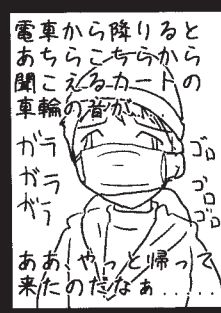 電車から降りると
あちらこちらから
聞こえるカートの
車輪の音が
ガラ
ガラ
ガラ
ゴロ
ゴロ
ゴロ
ああ、やっと帰って
来たのだなぁ......